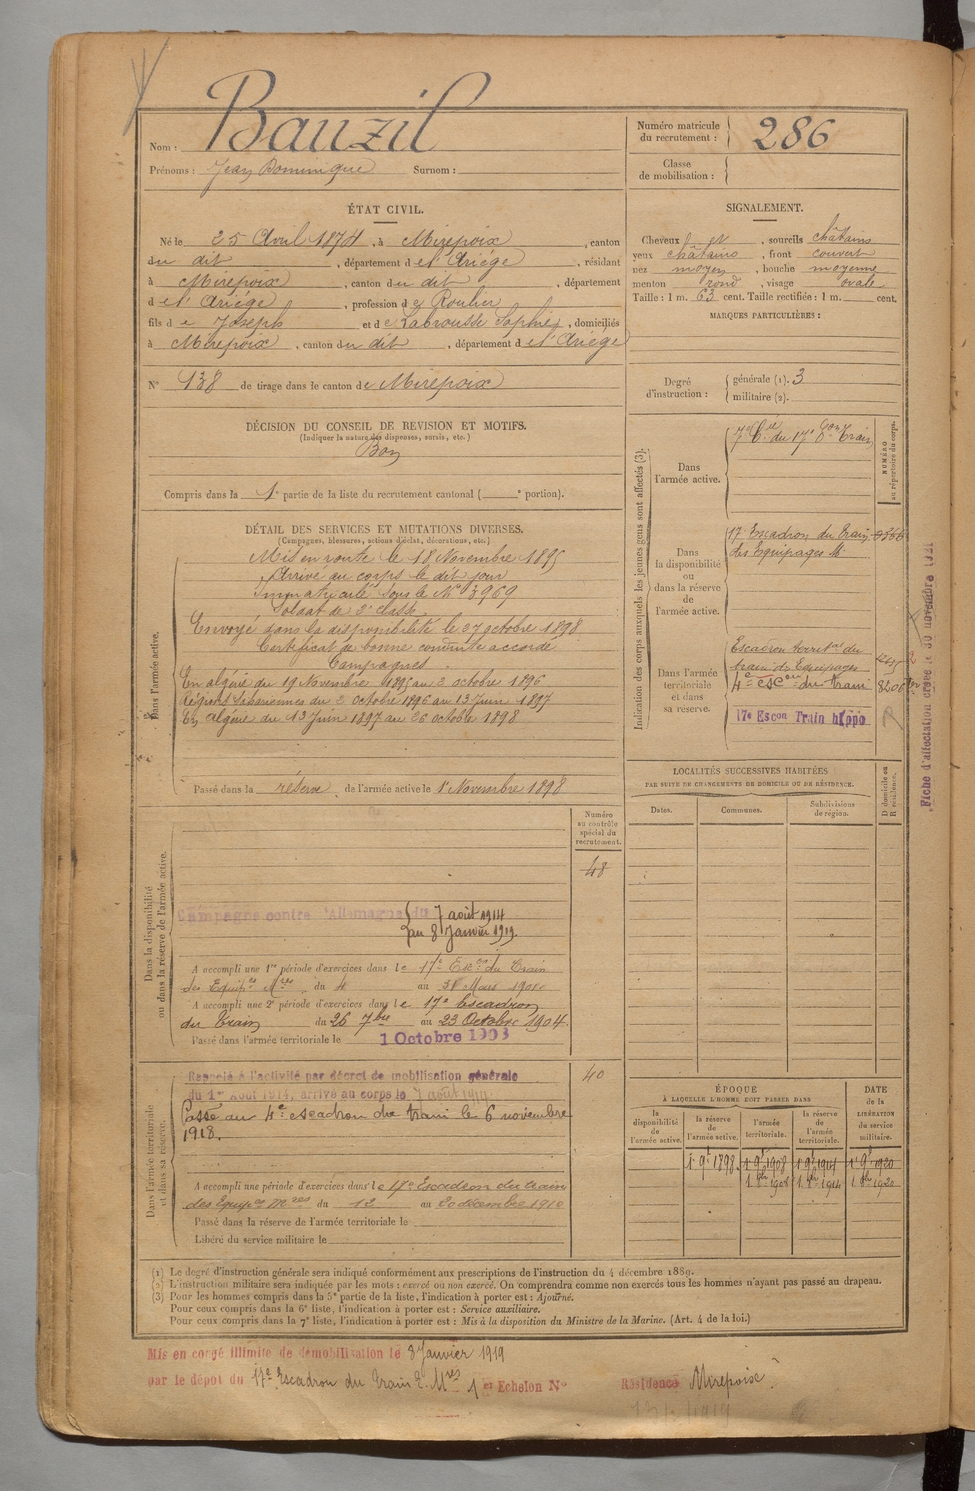 Bauzil
Nom :
Prénoms : Jean Dominique Surnom :
Numéro matricule du recrutement : 286
Classe de mobilisation :
ÉTAT CIVIL.
Né le 25 Avril 1874, à Mirepoix, canton
du dit, département de l'Ariège, résidant
à Mirepoix, canton du dit, département
de l'Ariège, profession de Roulier
fils de Joseph et de Labrousse Sophie, domiciliés
à Mirepoix, canton du dit, département de l'Ariège
N° 138 de tirage dans le canton de Mirepoix
SIGNALEMENT.
Cheveux et, sourcils châtains
yeux châtains, front couvert
nez moyen, bouche moyenne
menton rond, visage ovale
Taille : 1 m. 63 cent. Taille rectifiée : 1 m. cent.
MARQUES PARTICULIÈRES :
Degré d'instruction : générale (1). 3
militaire (2).
DÉCISION DU CONSEIL DE REVISION ET MOTIFS.
(Indiquer la nature des dispenses, sursis, etc.)
Bon
Compris dans la 1e partie de la liste du recrutement cantonal ( e portion).
DÉTAIL DES SERVICES ET MUTATIONS DIVERSES.
(Campagnes, blessures, actions d'éclat, décorations, etc.)
Dans l'armée active.
Mis en route le 18 Novembre 1895
Arrivé au corps le dit jour
Immatriculé sous le N° 3969
Soldat de 2e classe.
Envoyé dans la disponibilité le 27 octobre 1898
Certificat de bonne conduite accordé
Campagnes.
En algérie du 19 Novembre 1895 au 2 octobre 1896
Régions Sahariennes du 2 octobre 1896 au 13 Juin 1897
En algérie du 13 Juin 1897 au 26 octobre 1898
Passé dans la réserve de l'armée active le 1er Novembre 1898
Indication des corps auxquels les jeunes gens sont affectés (3).
NUMÉRO au répertoire du corps.
Dans l'armée active.
7e Cie du 17e Eon Train
Dans la disponibilité ou dans la réserve de l'armée active.
17e Escadron du Train
des Equipages M.
Dans l'armée territoriale et dans sa réserve.
Escadron territal du
train des Equipages
4e escon du train 8206
17e Escon Train hippo
Fiche d'affectation créée le 30 novembre 1921
LOCALITÉS SUCCESSIVES HABITÉES
PAR SUITE DE CHANGEMENTS DE DOMICILE OU DE RÉSIDENCE.
Dates. Communes. Subdivisions de région. D domicile ou R résidence.
Numéro au contrôle spécial du recrutement.
48
Dans la disponibilité ou dans la réserve de l'armée active.
Campagne contre l'Allemagne du 7 août 1914
au 8 Janvier 1919.
A accompli une 1re période d'exercices dans le 17e Escon du Train
des Equipes Mres du 4 au 31 Mars 1901
A accompli une 2e période d'exercices dans le 17e Escadron
du Train du 26 7bre au 23 Octobre 1904.
Passé dans l'armée territoriale le 1 Octobre 1908
Dans l'armée territoriale et dans sa réserve.
Rappelé à l'activité par décret de mobilisation générale
du 1er Août 1914, arrivé au corps le 7 août 1914
40
Passé au 4e escadron du train le 6 novembre
1918.
A accompli une période d'exercices dans le 17e Escadron du train
des Equipes Mres du 12 au 20 décembre 1910
Passé dans la réserve de l'armée territoriale le
Libéré du service militaire le
ÉPOQUE
À LAQUELLE L'HOMME DOIT PASSER DANS
la disponibilité de l'armée active. la réserve de l'armée active. l'armée territoriale. la réserve de l'armée territoriale. DATE de la LIBÉRATION du service militaire.
1898 1908 1914 1920
1908 1914 1920
(1) Le degré d'instruction générale sera indiqué conformément aux prescriptions de l'instruction du 4 décembre 1889.
(2) L'instruction militaire sera indiquée par les mots : exercé ou non exercé. On comprendra comme non exercés tous les hommes n'ayant pas passé au drapeau.
(3) Pour les hommes compris dans la 5e partie de la liste, l'indication à porter est : Ajourné.
Pour ceux compris dans la 6e liste, l'indication à porter est : Service auxiliaire.
Pour ceux compris dans la 7e liste, l'indication à porter est : Mis à la disposition du Ministre de la Marine. (Art. 4 de la loi.)
Mis en congé illimité de démobilisation le 8 Janvier 1919
par le dépôt du 17e Escadron du Train E. Mres 1er Echelon N° Résidence Mirepoix